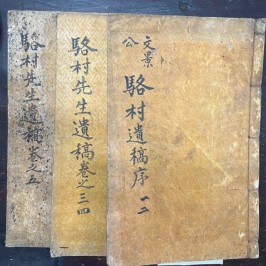 文景公
駱村遺稿序 一二
駱村先生遺稿卷之三四
駱村先生遺稿卷之五